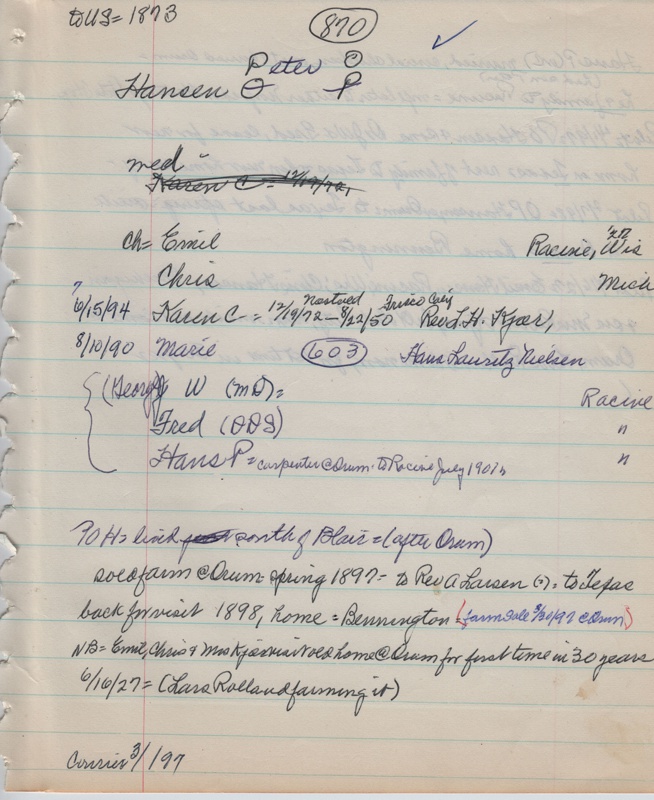 to US = 1873
870 ✓
Peter O
Hansen O P
med
Karen C = 12/19/72,
ch = Emil Racine, Wis
Chris Mich
6/15/94 Karen C = 12/19/72 - 8/22/50 Rev J. H. Kjær,
8/10/90 Marie 603 Hans Lauritz Nielsen
(George) W (MD) = Racine
Fred (DDS) "
Hans P = carpenter @ Orum - to Racine July 1901
POH = lived south of Blair = (after Orum)
sold farm @ Orum = spring 1897 - to Rev A Larsen (?) = to Texas
back for visit 1898, home = Bennington = (farm sale 3/30/97 @ Orum)
NB = Emil, Chris & Mrs Kjær visit old home @ Orum for first time in 30 years
6/16/27 = (Lars Rolland farming it)
Courier 3/1/97